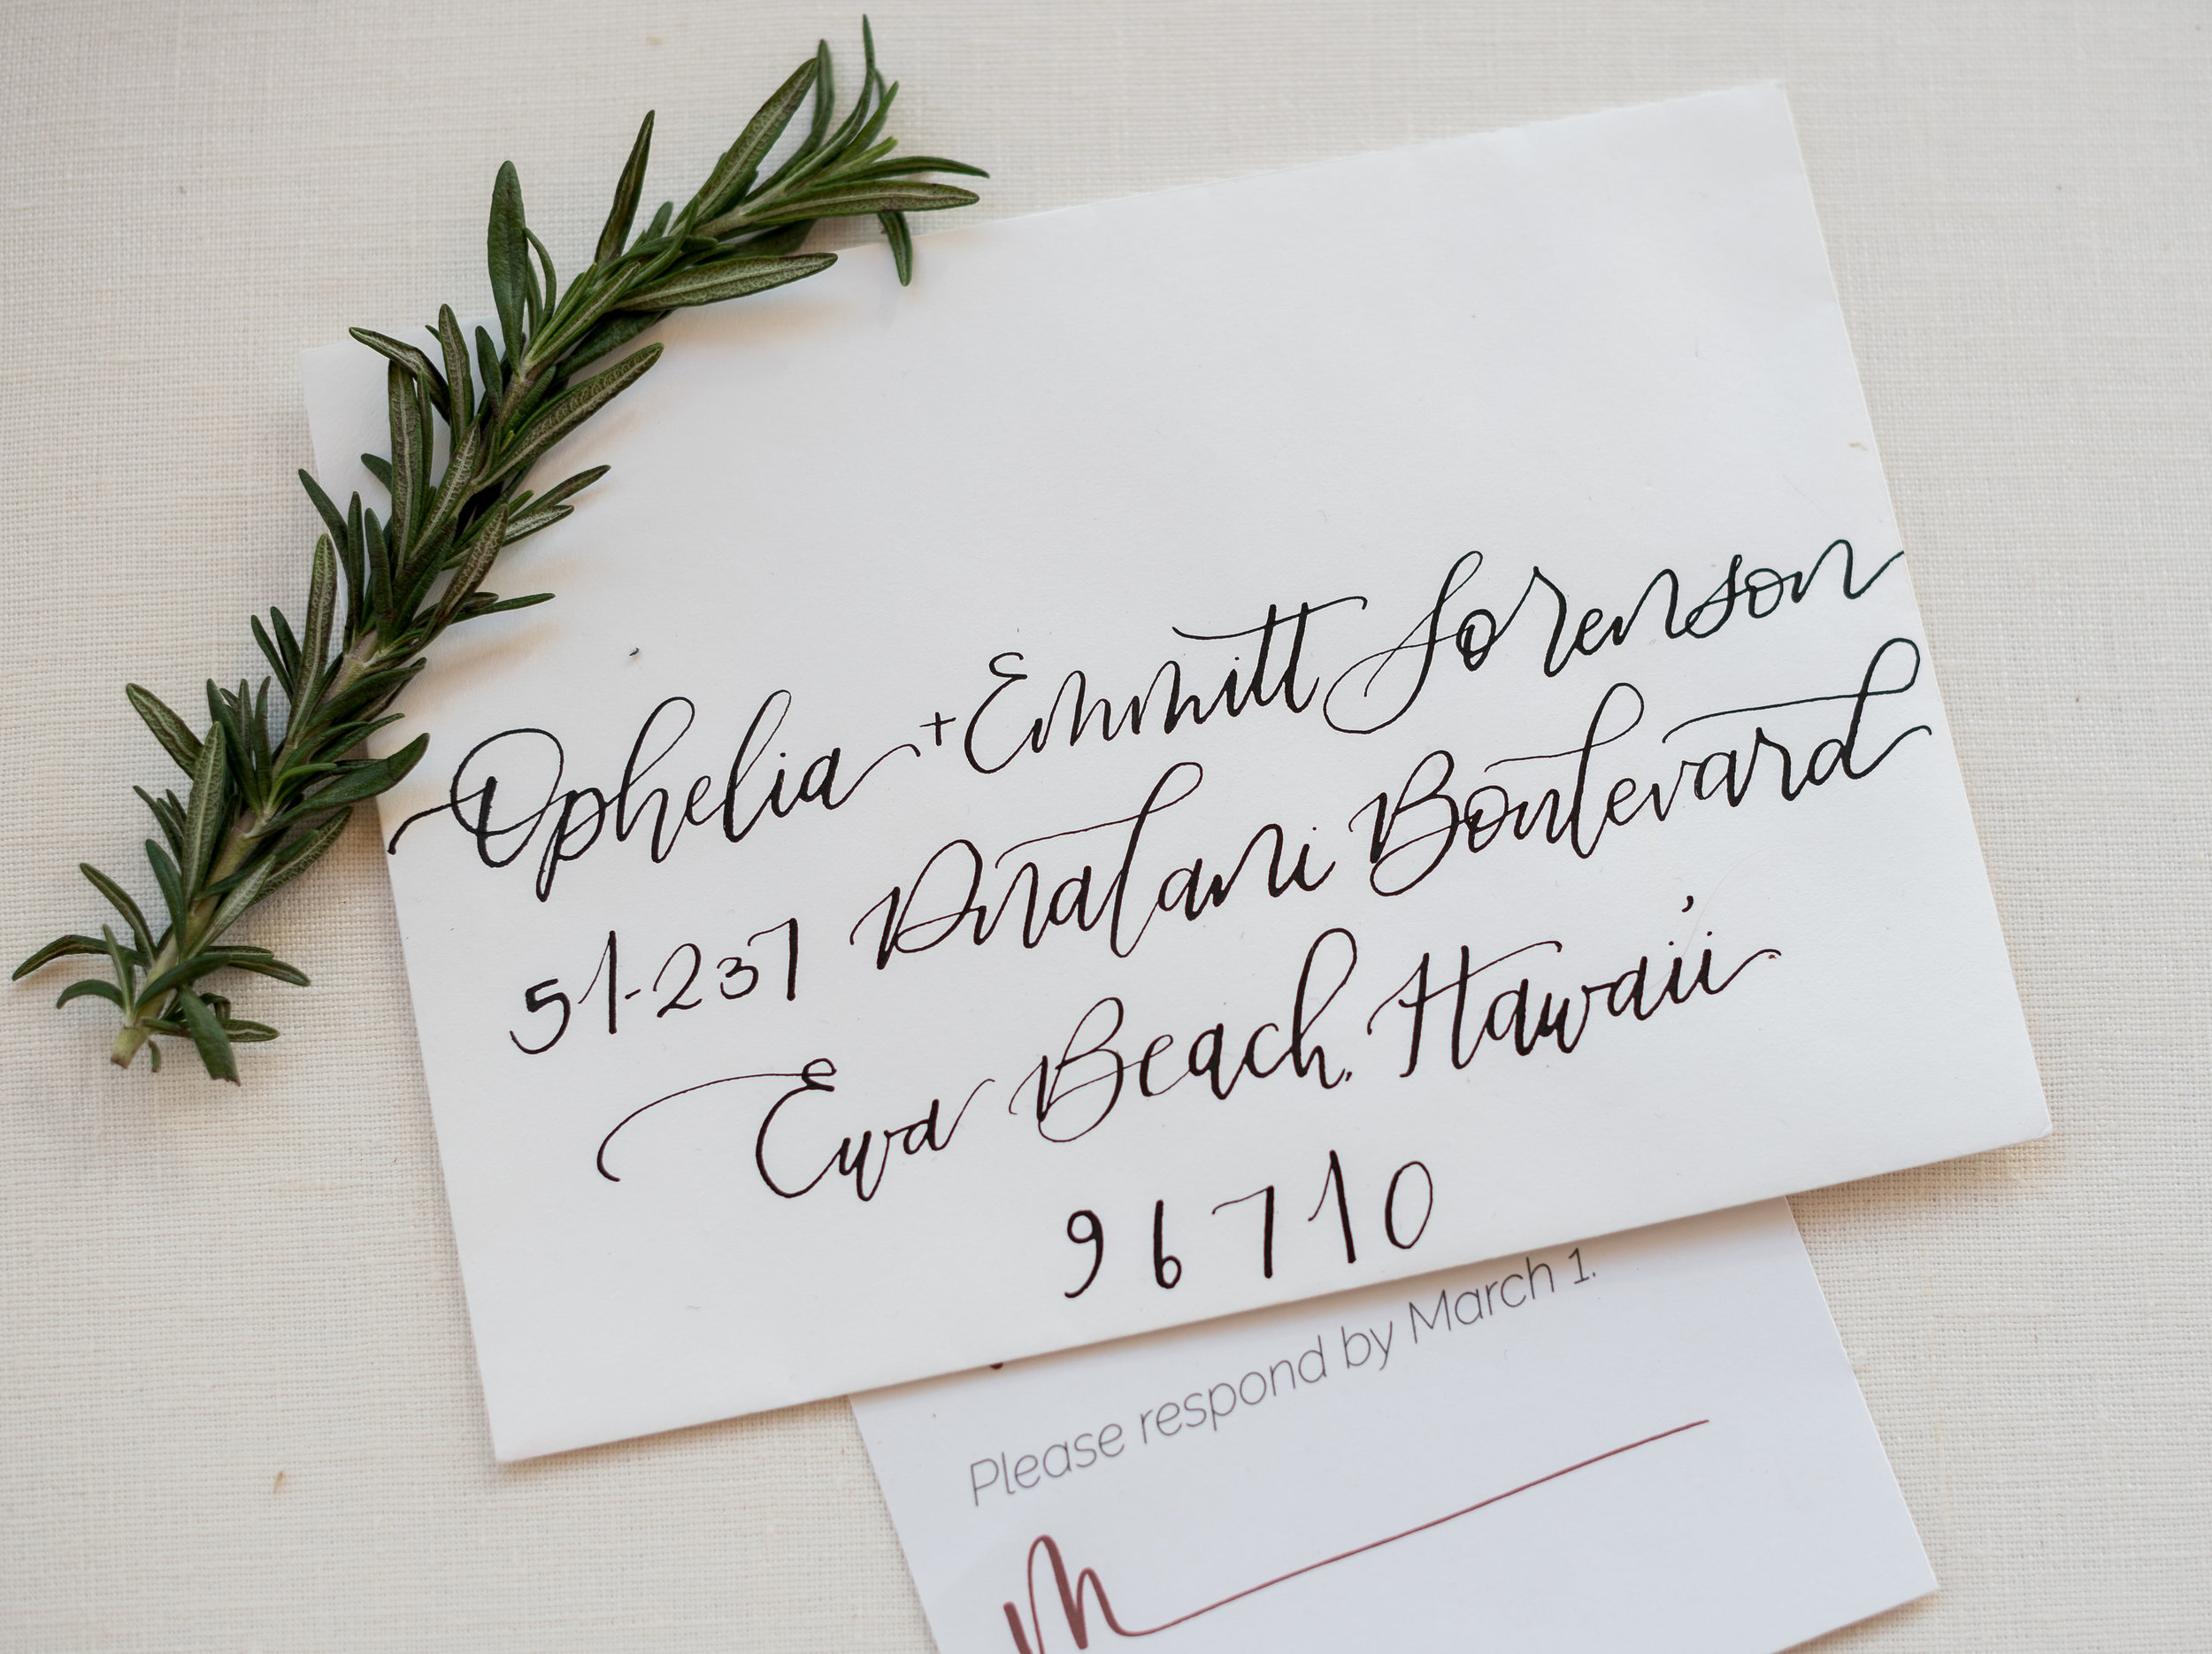 Ophelia + Emmitt Sorenson
51-237 Boulevard
Ewa Beach, Hawai'i
96710
Please respond by March 1.
M